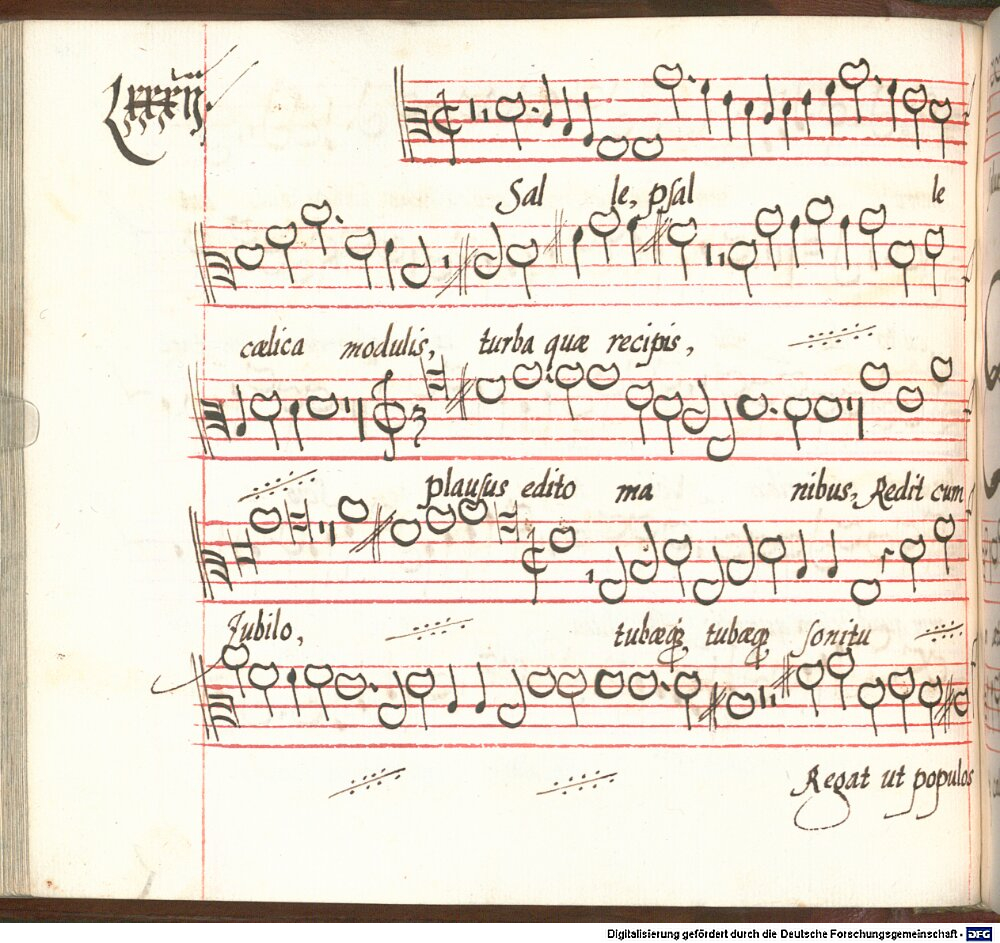 Lxxxiij.
Sal le, psal le
cælica modulis, turba quæ recipis,
plausus edito ma nibus, Redit cum
Jubilo, tubæq; tubæq; sonitu
Regat ut populos
Digitalisierung gefördert durch die Deutsche Forschungsgemeinschaft - DFG